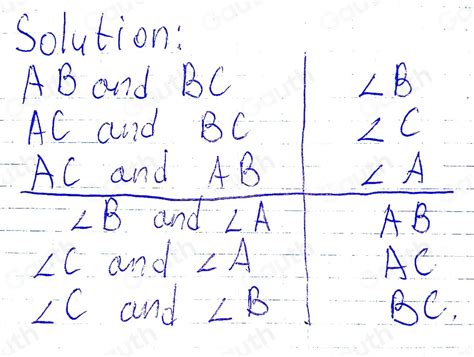 Solution:
AB and BC ∠B
AC and BC ∠C
AC and AB ∠A
∠B and ∠A AB
∠C and ∠A AC
∠C and ∠B BC.